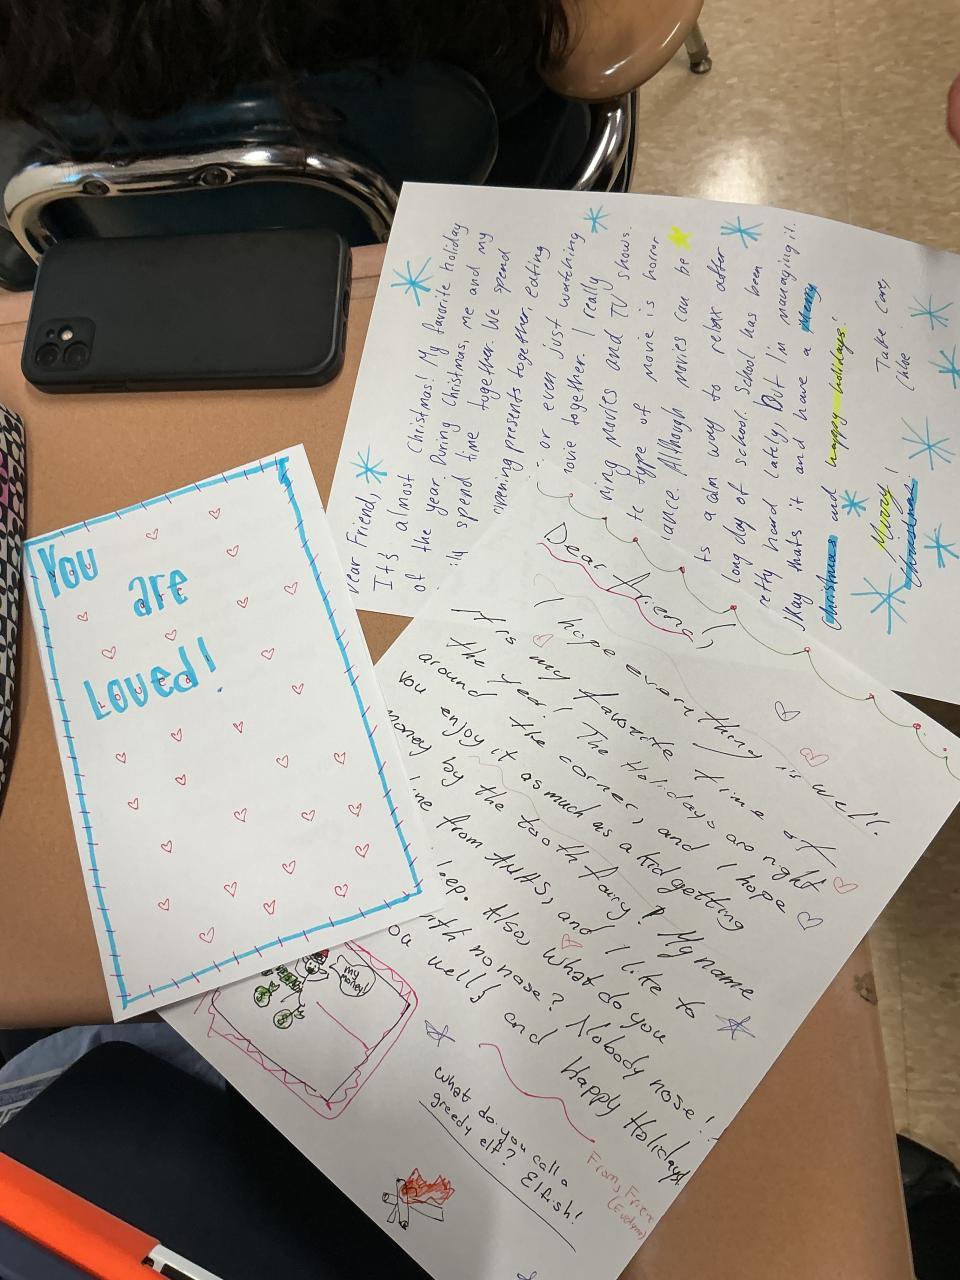 You
are
Loved!
Dear Friend,
It's almost Christmas! My favorite holiday
of the year. During Christmas, me and my
spend time together. We spend
opening presents together, eating
or even just watching
movie together. I really
movies and TV shows.
type of movie is horror
Although movies can be
a calm way to relax after
long day of school. School has been
hard lately, But I'm managing it.
thats it and have a Merry
Christmas and happy holidays!
Take care,
Chloe
Merry!
Christmas!
Dear friend,
I hope everything is well.
It is my favorite time of
the year! The Holidays are right
around the corner, and I hope
you enjoy it as much as a kid getting
money by the tooth fairy! My name
from AMHS, and I like to
Also, What do you
no nose? Nobody nose!
well and
Happy Holidays!
From, Friend
(Evelyn)
my
money!
What do you call a
greedy elf? Elfish!